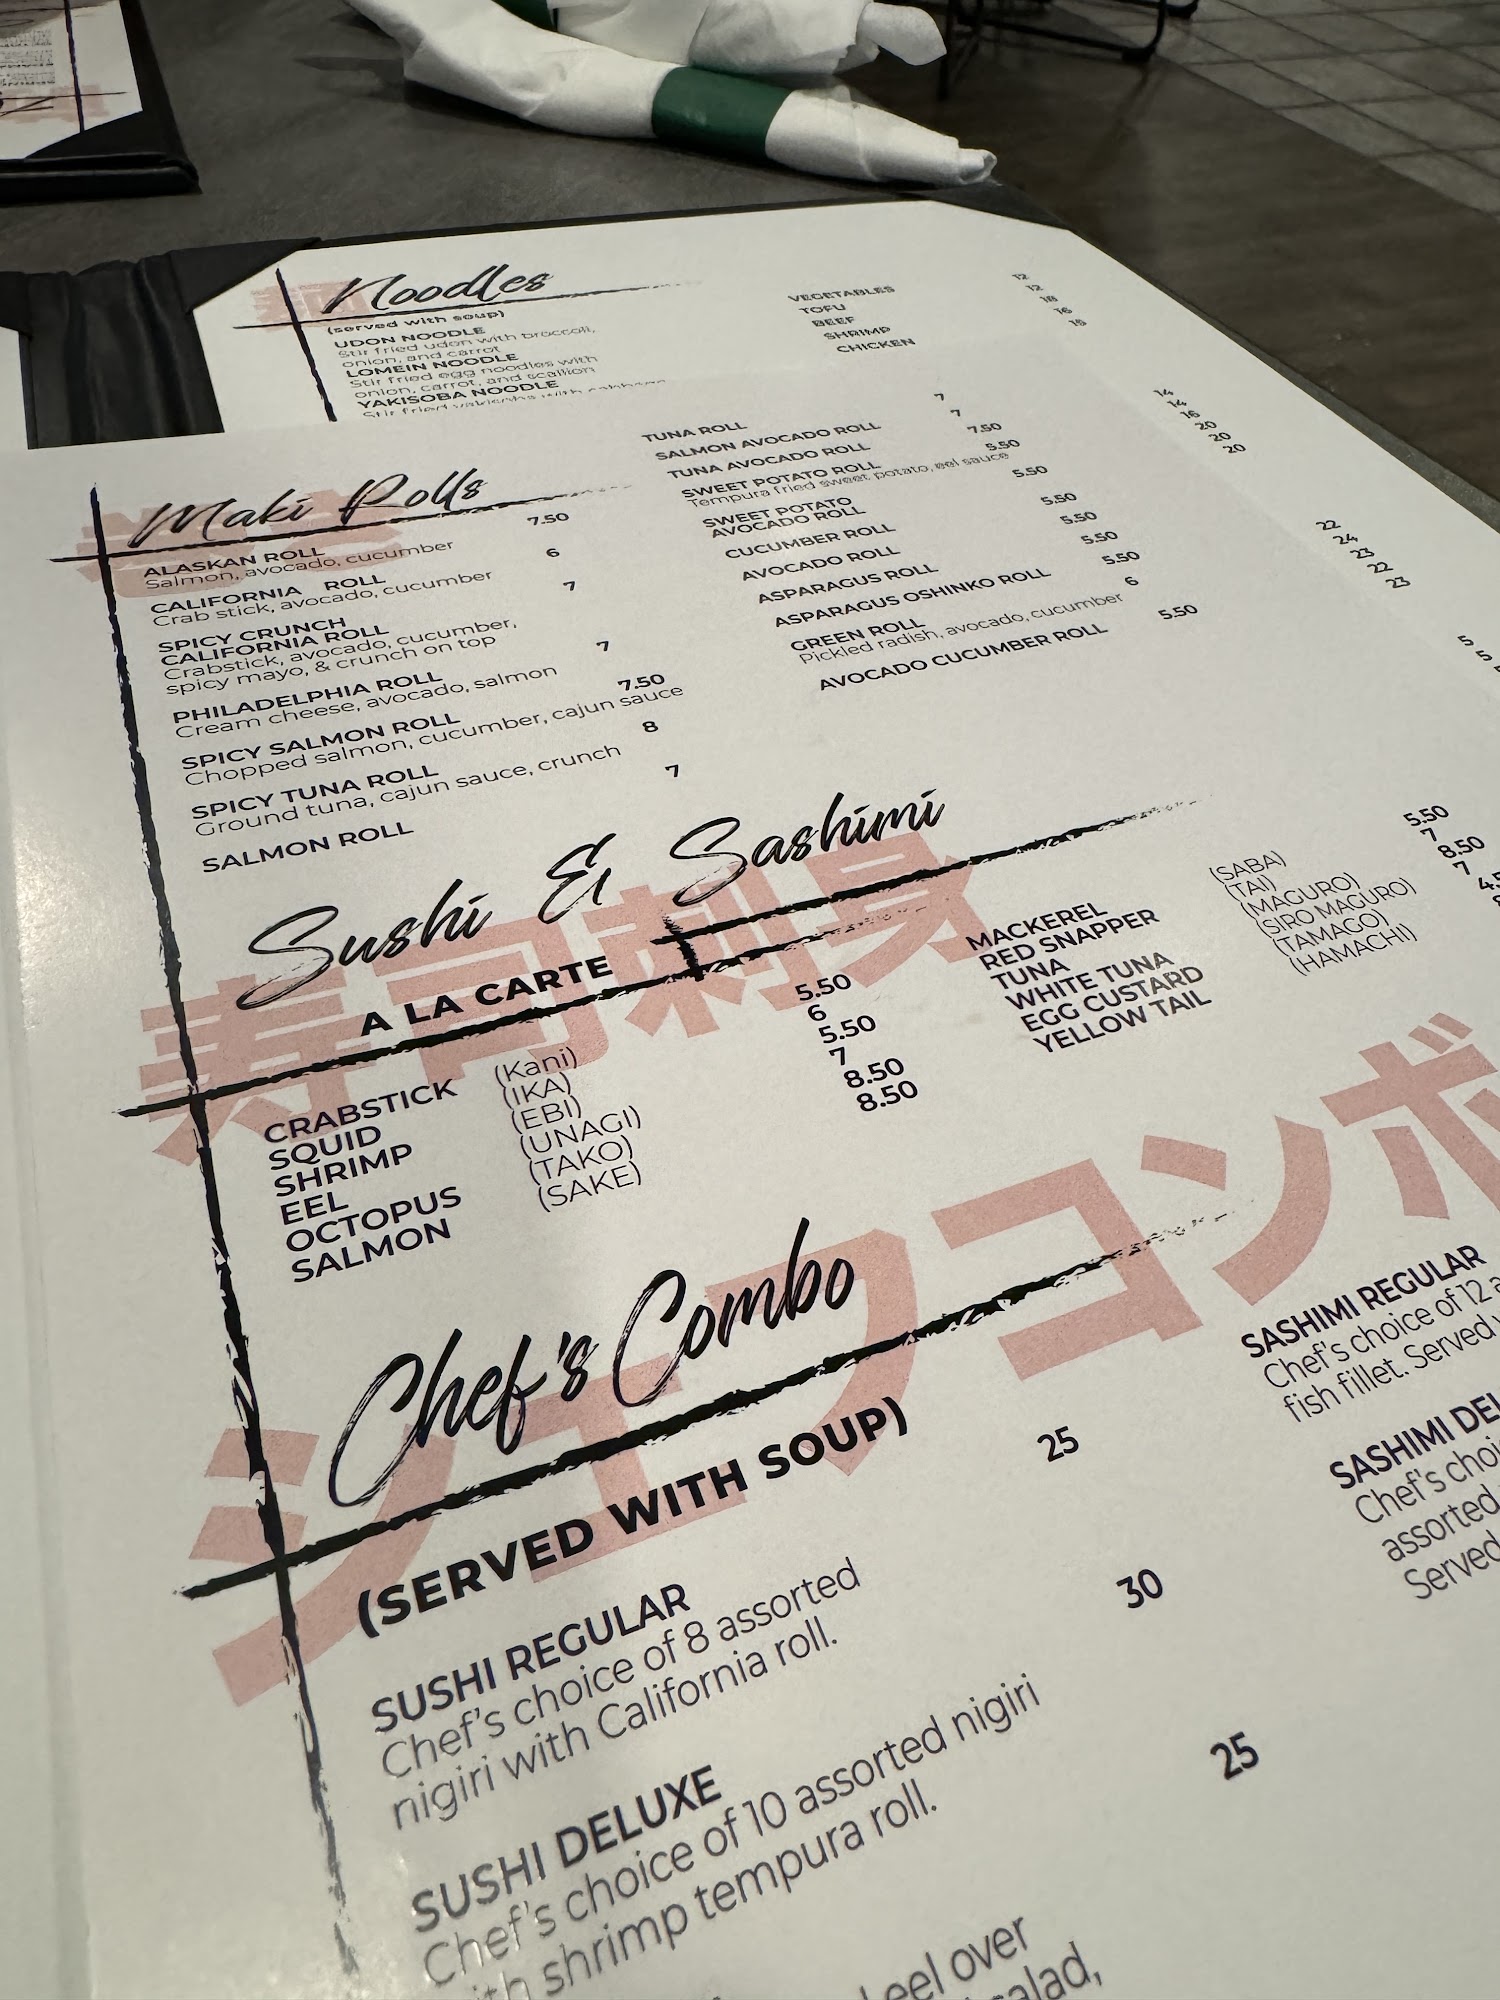 Noodles
(served with soup)
UDON NOODLE
Stir fried udon with broccoli,
onion, and carrot
LOMEIN NOODLE
Stir fried egg noodles with
onion, carrot, and scallion
YAKISOBA NOODLE
VEGETABLES 12
TOFU 12
BEEF 18
SHRIMP 16
CHICKEN 15
Maki Rolls
ALASKAN ROLL 7.50
Salmon, avocado, cucumber
CALIFORNIA ROLL 6
Crab stick, avocado, cucumber
SPICY CRUNCH 7
CALIFORNIA ROLL
Crabstick, avocado, cucumber,
spicy mayo, & crunch on top
PHILADELPHIA ROLL 7
Cream cheese, avocado, salmon
SPICY SALMON ROLL 7.50
Chopped salmon, cucumber, cajun sauce
SPICY TUNA ROLL 8
Ground tuna, cajun sauce, crunch
SALMON ROLL 7
TUNA ROLL 7
SALMON AVOCADO ROLL 7
TUNA AVOCADO ROLL 7.50
SWEET POTATO ROLL 5.50
Tempura fried sweet potato, eel sauce
SWEET POTATO 5.50
AVOCADO ROLL
CUCUMBER ROLL 5.50
AVOCADO ROLL 5.50
ASPARAGUS ROLL 5.50
ASPARAGUS OSHINKO ROLL 5.50
GREEN ROLL 6
Pickled radish, avocado, cucumber
AVOCADO CUCUMBER ROLL 5.50
14
14
16
20
20
20
22
24
23
22
23
5
5
Sushi & Sashimi
寿司刺身
A LA CARTE
CRABSTICK (Kani) 5.50
SQUID (IKA) 6
SHRIMP (EBI) 5.50
EEL (UNAGI) 7
OCTOPUS (TAKO) 8.50
SALMON (SAKE) 8.50
MACKEREL (SABA) 5.50
RED SNAPPER (TAI) 7
TUNA (MAGURO) 8.50
WHITE TUNA (SIRO MAGURO) 7
EGG CUSTARD (TAMAGO)
YELLOW TAIL (HAMACHI)
Chef's Combo
シェフコンボ
(SERVED WITH SOUP)
SUSHI REGULAR 25
Chef's choice of 8 assorted
nigiri with California roll.
SUSHI DELUXE 30
Chef's choice of 10 assorted nigiri
shrimp tempura roll.
25
eel over
SASHIMI REGULAR
Chef's choice of 12
fish fillet. Served
SASHIMI
Chef's
assorted
Served